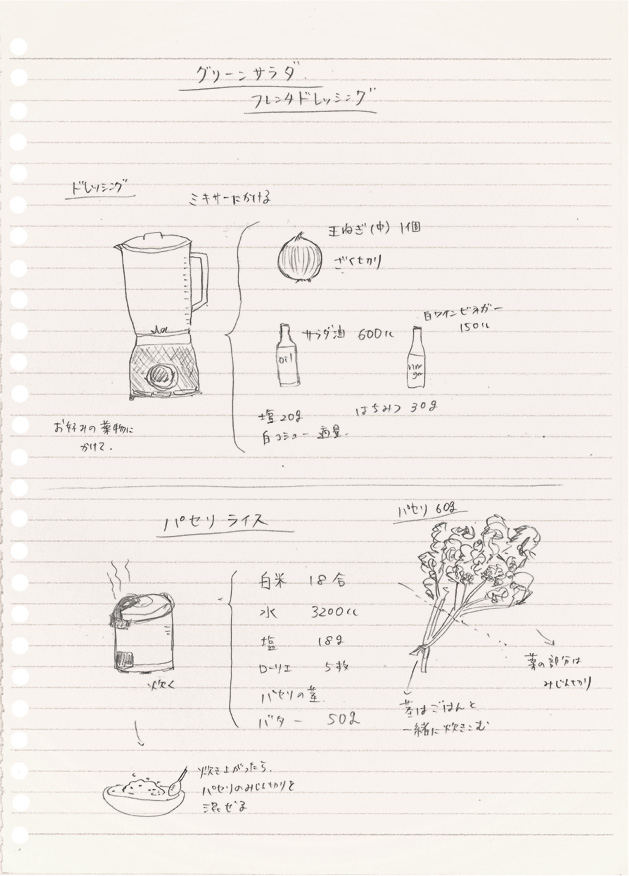 グリーンサラダ
フレンチドレッシング
ドレッシング
ミキサーにかける
玉ねぎ(中) 1個
ざく切り
サラダ油 600cc
oil
白ワインビネガー
150cc
vin
塩 20g
はちみつ 30g
白コショー 適量.
お好みの葉物に
かけて.
パセリライス
パセリ 60g
白米 18合
水 3200cc
塩 18g
ローリエ 5枚
パセリの茎
バター 50g
炊く
葉の部分は
みじん切り
茎はごはんと
一緒に炊きこむ
炊き上がったら.
パセリのみじん切りを
混ぜる